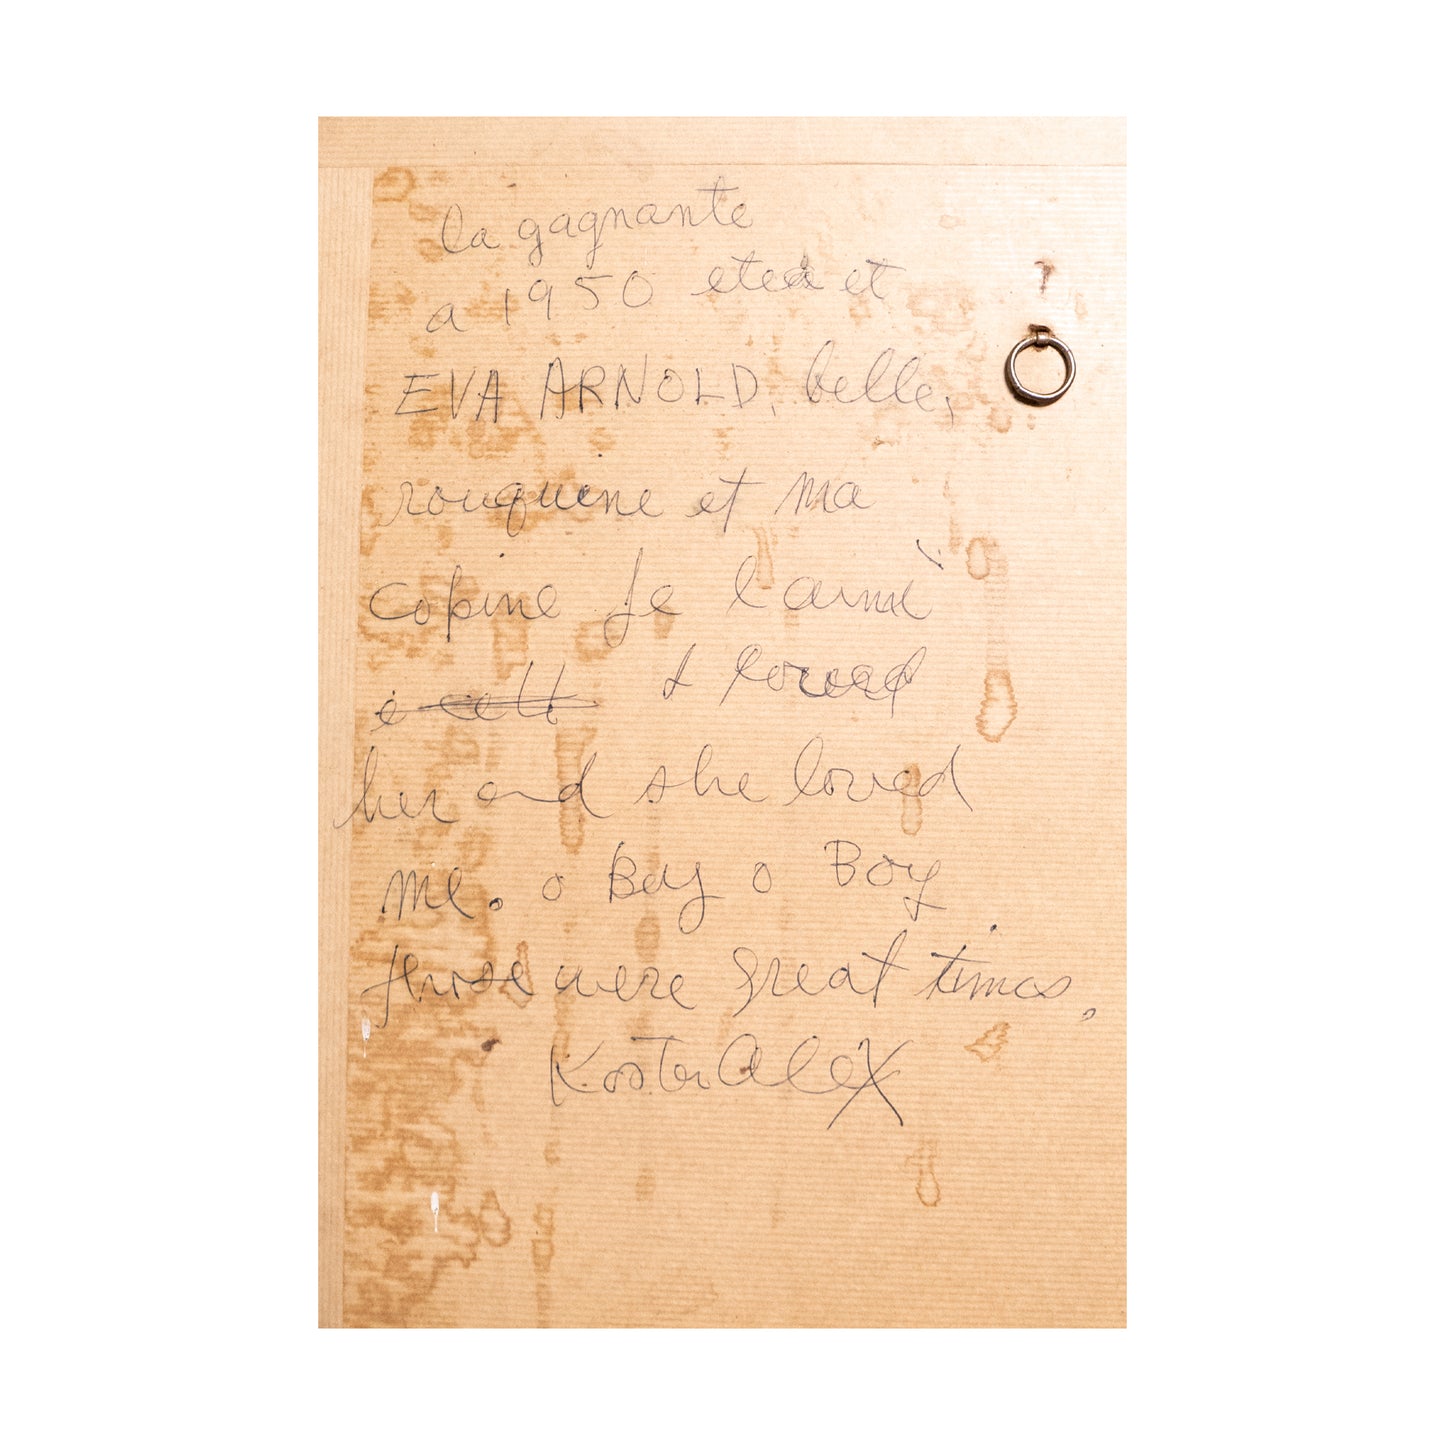 la gagnante
a 1950 etea et
EVA ARNOLD, belle,
rouquine et ma
copine je l'aimè
her and she loved
me. o Boy o Boy
those were great times,
Koster Alex